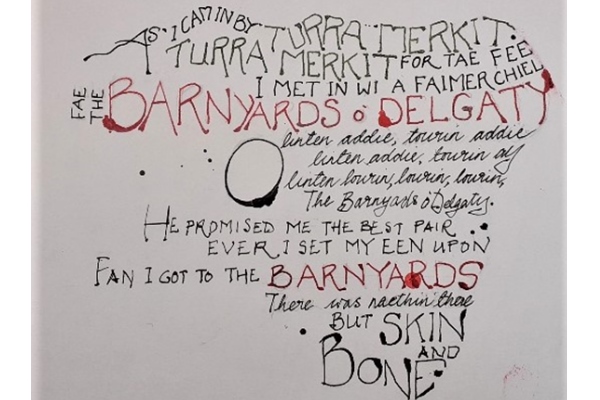 As I CAM IN BY TURRA MERKIT.
TURRA MERKIT FOR TAE FEE
I MET IN WI A FAIMER CHIEL
FAE THE BARNYARDS O' DELGATY
O linten addie, tourin addie
linten addie, tourin ay
linten lourin, lourin, lourin,
The Barnyads o'Delgaty.
HE PROMISED ME THE BEST PAIR
EVER I SET MY EEN UPON
FAN I GOT TO THE BARNYARDS
There was naethin there
BUT SKIN
AND
BONE